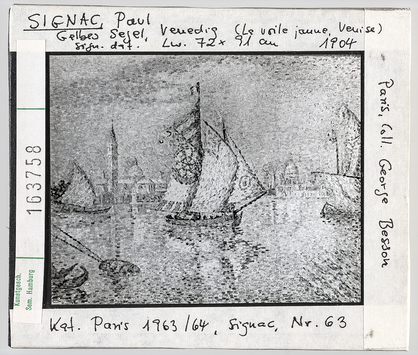 SIGNAC, Paul
Gelbes Segel, Venedig (Le voile jaune, Venise)
sign. dat. Lw. 72 x 91 cm 1904
Paris, Coll. George Besson
163758
Kunstgesch.
Sem. Hamburg
Kat. Paris 1963/64, Signac, Nr. 63